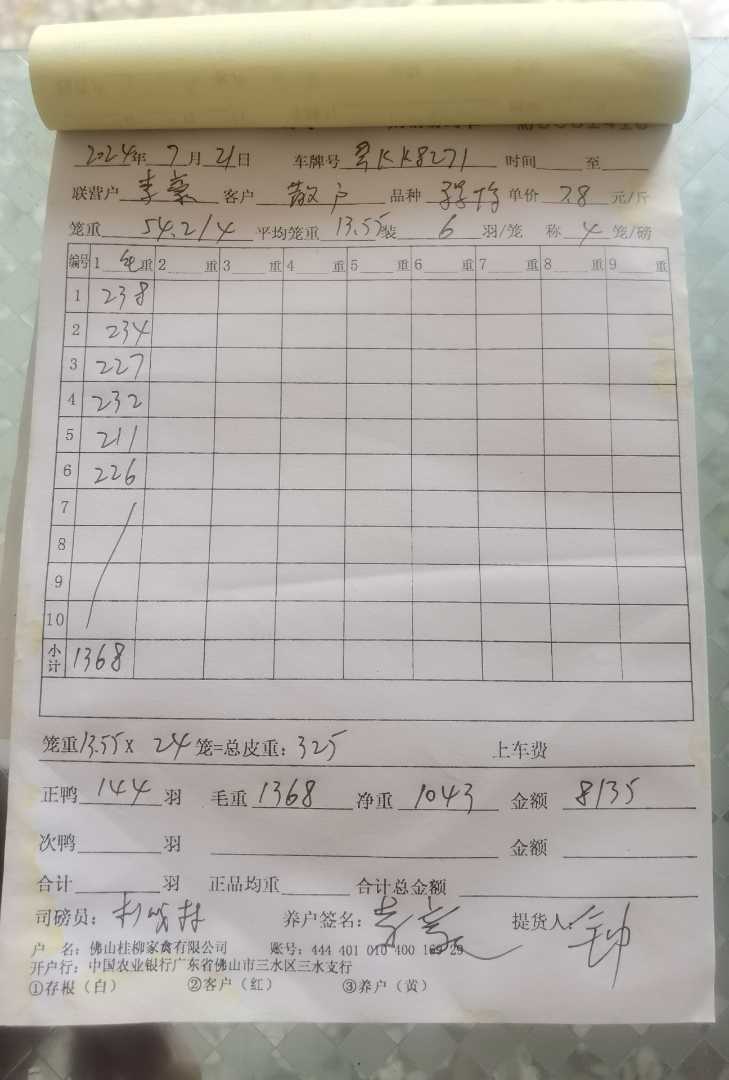 2024年 7 月 21 日 车牌号 粤KK8271 时间 至
联营户 李豪 客户 散户 品种 单价 7.8 元/斤
笼重 54.2/4 平均笼重 13.55 装 6 羽/笼 称 4 笼/磅
编号 1 毛重 2 重 3 重 4 重 5 重 6 重 7 重 8 重 9 重
1 238
2 234
3 227
4 232
5 211
6 226
7
8
9
10
小计 1368
笼重 13.55 X 24 笼=总皮重: 325 上车费
正鸭 144 羽 毛重 1368 净重 1043 金额 8135
次鸭 羽 金额
合计 羽 正品均重 合计总金额
司磅员: 养户签名: 李豪 提货人: 钟
户 名: 佛山桂柳家禽有限公司 账号: 444 401 010 400 169 29
开户行: 中国农业银行广东省佛山市三水区三水支行
①存根（白） ②客户（红） ③养户（黄）